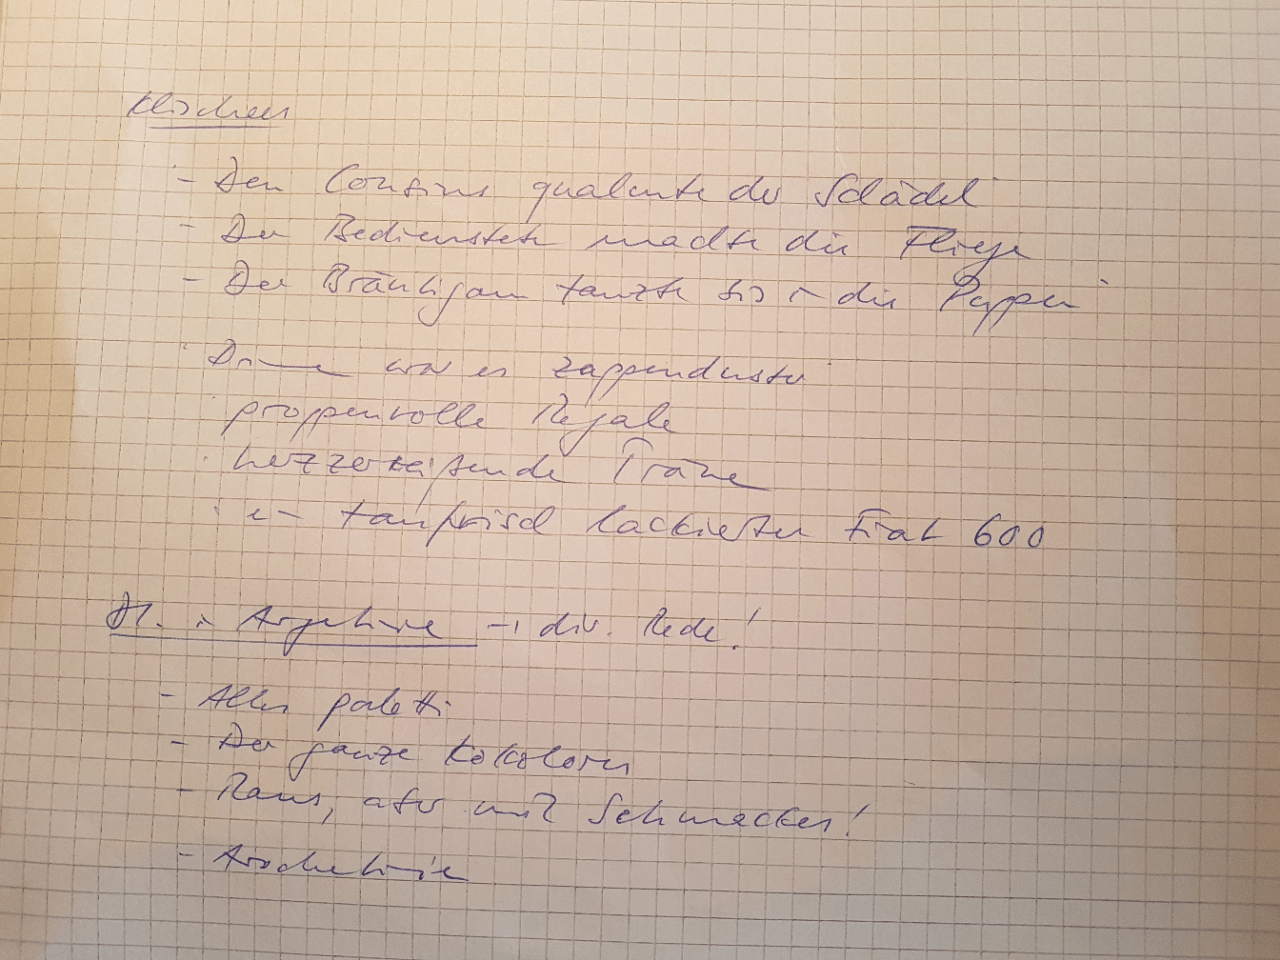 Klischees
- Den Cousins qualmte der Schädel
- Der Bedienstete machte die Fliege
- Der Bräutigam tanzte bis in die Puppen
Drinnen war es zappenduster
proppenvolle Regale
herzzerreißende Träne
ein taufrisch lackierter Fiat 600
in Argentinien → dir. Rede!
- Alles paletti
- Der ganze Kokolores
- Raus, aber mit Schmackes!